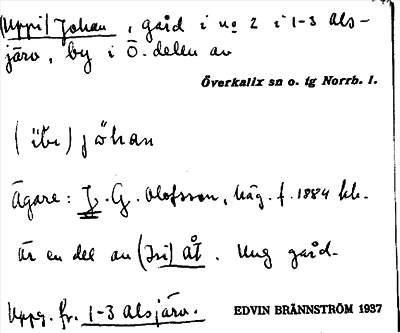 (Uppi) Johan, gård i no 2 i 1-3 Als-
järv, by i Ö. delen av
Överkalix sn o. tg Norrb. l.
(üti) jöhan
Ägare: J. G. Olofsson, häg. f. 1884 hh.
Är en del av (Isi) åt. Ung gård.
Uppg. fr. 1-3 Alsjärv.
EDVIN BRÄNNSTRÖM 1937